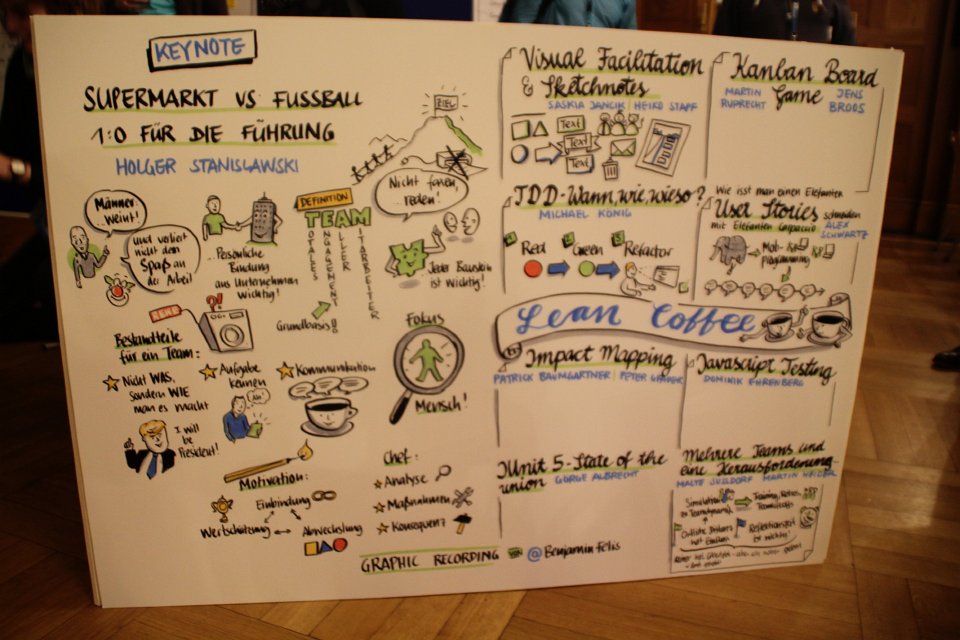 KEYNOTE
SUPERMARKT VS FUSSBALL
1:0 FÜR DIE FÜHRUNG
HOLGER STANISLAWSKI
ZIEL
Männer:
Weint!
Und verliert
nicht den
Spaß an
der Arbeit
Persönliche
Bindung
aus Unternehmen
wichtig!
DEFINITION
TEAM
TOTALES
ENGAGEMENT
ALLER
MITARBEITER
Grundbasis!!
reden!
Jeder Baustein
ist wichtig!
REWE
?!
Bestandteile
für ein Team:
Nicht WAS,
sondern WIE
man es macht
Aufgabe
kennen
Ah!
Kommunikation
I will
be
President!
Fokus
Mensch!
Motivation:
Einbindung
Wertschätzung
Abwechslung
Chef:
Analyse
Maßnahmen
Konsequenz
GRAPHIC RECORDING
VON
@Benjamin Felis
Visual Facilitation
& Sketchnotes
SASKIA JANCIK | HEIKO STAPF
Text
Text
Text
Kanban Board
Game
MARTIN
RUPRECHT
JENS
BROOS
TDD - Wann, wie, wieso?
MICHAEL KÖNIG
Red
Green
Refactor
Wie isst man einen Elefanten
User Stories schneiden
mit Elefanten Carpaccio
ALEX
SCHWARTZ
Mob-
programming
Lean Coffee
Impact Mapping
PATRICK BAUMGARTNER | PETER
Javascript Testing
DOMINIK EHRENBERG
JUnit 5 - State of the
union
GEORGE ALBRECHT
Mehrere Teams und
eine Herausforderung
MALTE MARTIN HEIDER
Simulation
Reflectionszeit
ist wichtig!